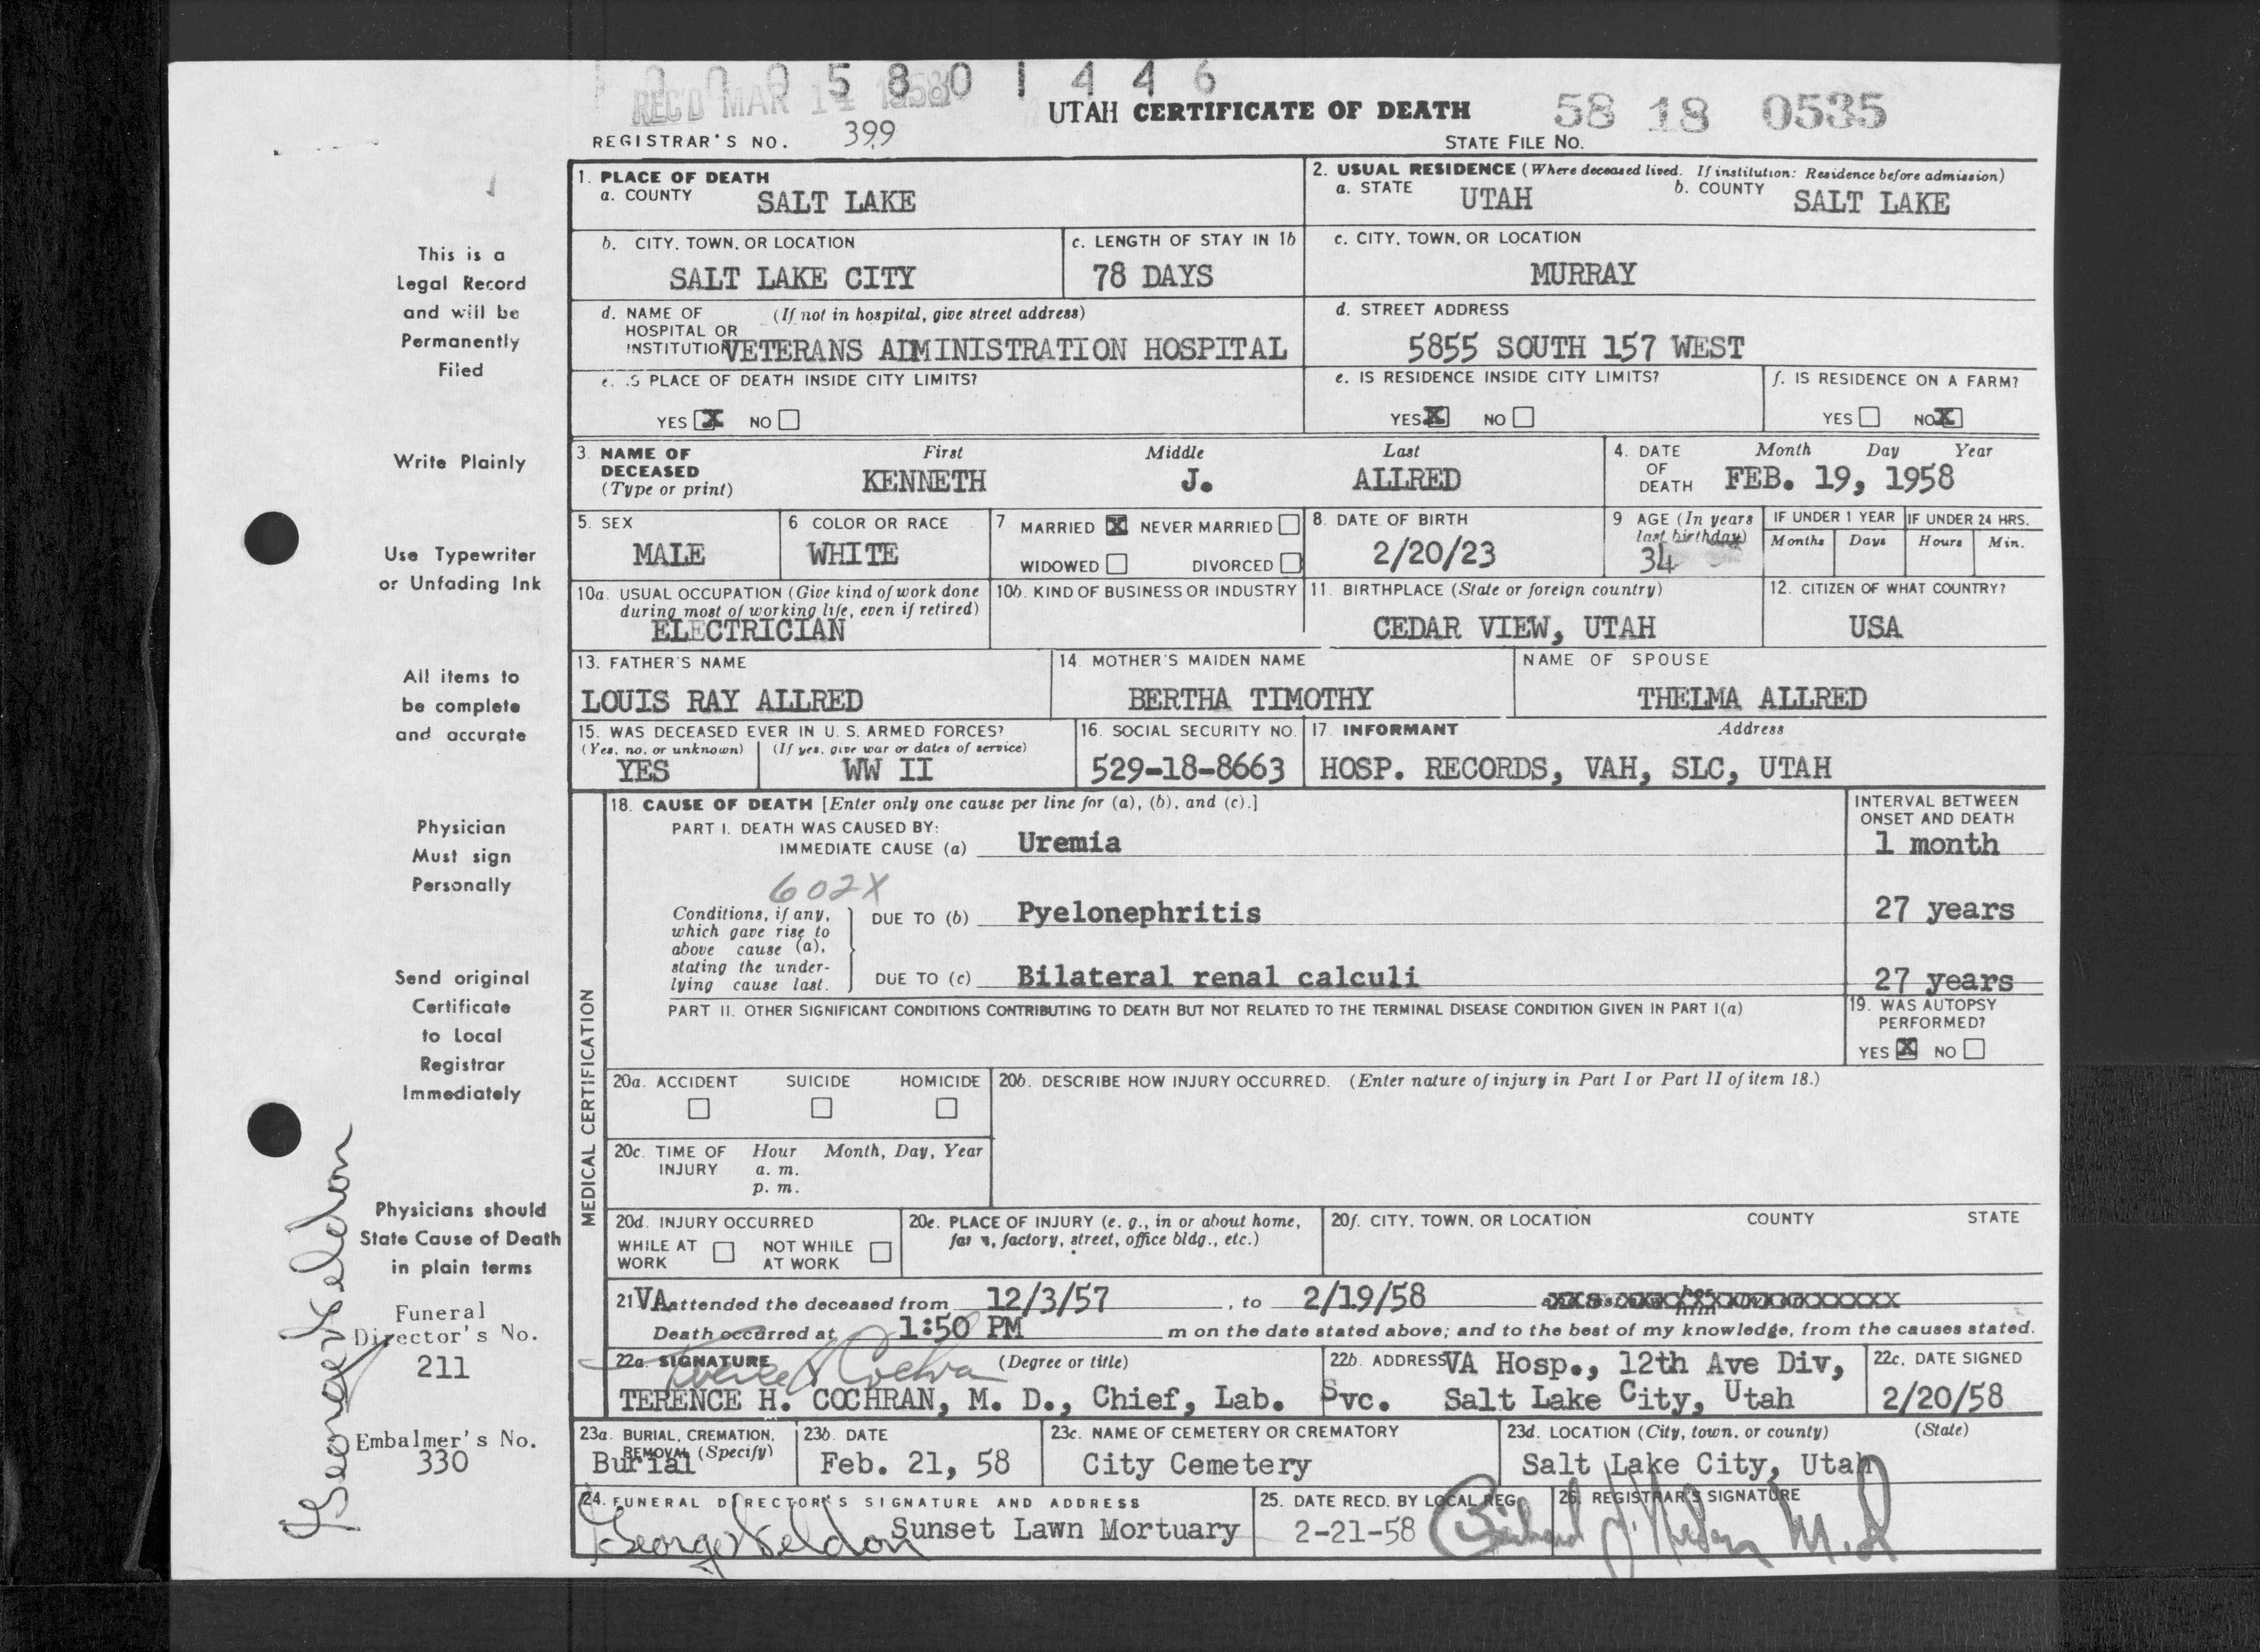 0 0 0 5 8 0 1 4 4 6
REC'D MAR 14 1958
UTAH CERTIFICATE OF DEATH
58 18 0535
REGISTRAR'S NO. 399
STATE FILE NO.
This is a
Legal Record
and will be
Permanently
Filed
Write Plainly
Use Typewriter
or Unfading Ink
All items to
be complete
and accurate
Physician
Must sign
Personally
Send original
Certificate
to Local
Registrar
Immediately
Physicians should
State Cause of Death
in plain terms
Funeral
Director's No.
211
Embalmer's No.
330
George Seldon
1. PLACE OF DEATH
a. COUNTY SALT LAKE
2. USUAL RESIDENCE (Where deceased lived. If institution: Residence before admission)
a. STATE UTAH b. COUNTY SALT LAKE
b. CITY, TOWN, OR LOCATION
SALT LAKE CITY
c. LENGTH OF STAY IN 1b
78 DAYS
c. CITY, TOWN, OR LOCATION
MURRAY
d. NAME OF (If not in hospital, give street address)
HOSPITAL OR
INSTITUTION VETERANS ADMINISTRATION HOSPITAL
d. STREET ADDRESS
5855 SOUTH 157 WEST
e. IS PLACE OF DEATH INSIDE CITY LIMITS?
YES X NO
e. IS RESIDENCE INSIDE CITY LIMITS?
YES X NO
f. IS RESIDENCE ON A FARM?
YES NO X
3. NAME OF DECEASED (Type or print)
First Middle Last
KENNETH J. ALLRED
4. DATE OF DEATH
Month Day Year
FEB. 19, 1958
5. SEX
MALE
6 COLOR OR RACE
WHITE
7 MARRIED X NEVER MARRIED
WIDOWED DIVORCED
8. DATE OF BIRTH
2/20/23
9 AGE (In years last birthday)
34
IF UNDER 1 YEAR
Months Days
IF UNDER 24 HRS.
Hours Min.
10a. USUAL OCCUPATION (Give kind of work done
during most of working life, even if retired)
ELECTRICIAN
10b. KIND OF BUSINESS OR INDUSTRY
11. BIRTHPLACE (State or foreign country)
CEDAR VIEW, UTAH
12. CITIZEN OF WHAT COUNTRY?
USA
13. FATHER'S NAME
LOUIS RAY ALLRED
14. MOTHER'S MAIDEN NAME
BERTHA TIMOTHY
NAME OF SPOUSE
THELMA ALLRED
15. WAS DECEASED EVER IN U. S. ARMED FORCES?
(Yes, no, or unknown) (If yes, give war or dates of service)
YES WW II
16. SOCIAL SECURITY NO.
529-18-8663
17. INFORMANT Address
HOSP. RECORDS, VAH, SLC, UTAH
MEDICAL CERTIFICATION
18. CAUSE OF DEATH [Enter only one cause per line for (a), (b), and (c).]
INTERVAL BETWEEN
ONSET AND DEATH
PART I. DEATH WAS CAUSED BY:
IMMEDIATE CAUSE (a) Uremia 1 month
602X
Conditions, if any,
which gave rise to
above cause (a),
stating the under-
lying cause last.
DUE TO (b) Pyelonephritis 27 years
DUE TO (c) Bilateral renal calculi 27 years
PART II. OTHER SIGNIFICANT CONDITIONS CONTRIBUTING TO DEATH BUT NOT RELATED TO THE TERMINAL DISEASE CONDITION GIVEN IN PART I(a)
19. WAS AUTOPSY
PERFORMED?
YES X NO
20a. ACCIDENT SUICIDE HOMICIDE
20b. DESCRIBE HOW INJURY OCCURRED. (Enter nature of injury in Part I or Part II of item 18.)
20c. TIME OF INJURY
Hour Month, Day, Year
a. m.
p. m.
20d. INJURY OCCURRED
WHILE AT WORK NOT WHILE AT WORK
20e. PLACE OF INJURY (e. g., in or about home,
farm, factory, street, office bldg., etc.)
20f. CITY, TOWN, OR LOCATION COUNTY STATE
21 VA attended the deceased from 12/3/57, to 2/19/58
Death occurred at 1:50 PM m on the date stated above; and to the best of my knowledge, from the causes stated.
22a. SIGNATURE (Degree or title)
Terence H Cochran
TERENCE H. COCHRAN, M. D., Chief, Lab. Svc.
22b. ADDRESS VA Hosp., 12th Ave Div,
Salt Lake City, Utah
22c. DATE SIGNED
2/20/58
23a. BURIAL, CREMATION,
REMOVAL (Specify)
Burial
23b. DATE
Feb. 21, 58
23c. NAME OF CEMETERY OR CREMATORY
City Cemetery
23d. LOCATION (City, town, or county) (State)
Salt Lake City, Utah
24. FUNERAL DIRECTOR'S SIGNATURE AND ADDRESS
George Seldon Sunset Lawn Mortuary
25. DATE RECD. BY LOCAL REG.
2-21-58
26. REGISTRAR'S SIGNATURE
M.D